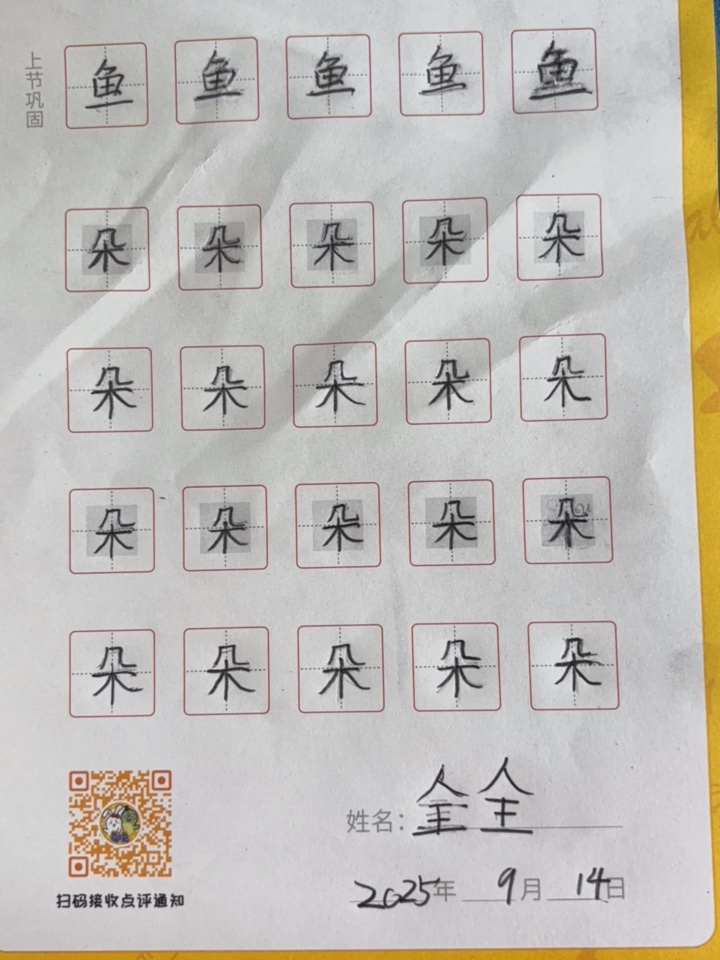 上节巩固
鱼 鱼 鱼 鱼 鱼
朵 朵 朵 朵 朵
朵 朵 朵 朵 朵
朵 朵 朵 朵 朵
朵 朵 朵 朵 朵
姓名：全全
2025年 9月 14日
扫码接收点评通知